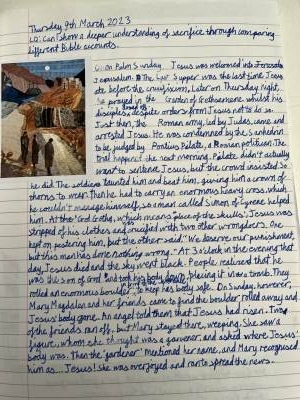 Thursday 9th March 2023
LQ: Can I show a deeper understanding of sacrifice through comparing
different Bible accounts.
On Palm Sunday, Jesus was welcomed into
Jerusalem. The Last Supper was the last time Jesus
ate before the crucifixion. Later on Thursday night,
he prayed in the Garden of Gethsemane whilst his
disciples despite orders from Jesus not to do so.
Just then, the Roman army, led by Judas, came and
arrested Jesus. He was condemned by the Sanhedrin
to be judged by Pontius Pilate, a Roman political. The
trial happened the next morning. Pilate didn't actually
want to sentence Jesus, but the crowd insisted so
he did. The soldiers taunted him and beat him, giving him a crown of
thorns to wear. Then he had to carry an enormous heavy cross, which
he couldn't manage himself, so a man called Simon of Cyrene helped
him. At the 'Golgotha', which means 'place of the skulls', Jesus was
stripped of his clothes and crucified with two other wrongdoers. One
kept on pestering him, but the other said, "We deserve our punishment,
but this man has done nothing wrong." At 3 o'clock in the evening that
day, Jesus died and the sky went black. People realised that he
was the son of God and took his body down, placing it in a tomb. They
rolled an enormous boulder to keep his body safe. On Sunday, however,
Mary Magdalen and her friends came to find the boulder rolled away and
Jesus' body gone. An angel told them that Jesus had risen. Two
of the friends ran off, but Mary stayed there, weeping. She saw a
figure, whom she thought was a gardener, and asked where Jesus'
body was. Then the 'gardener' mentioned her name, and Mary recognised
him as... Jesus! She was overjoyed and ran to spread the news.